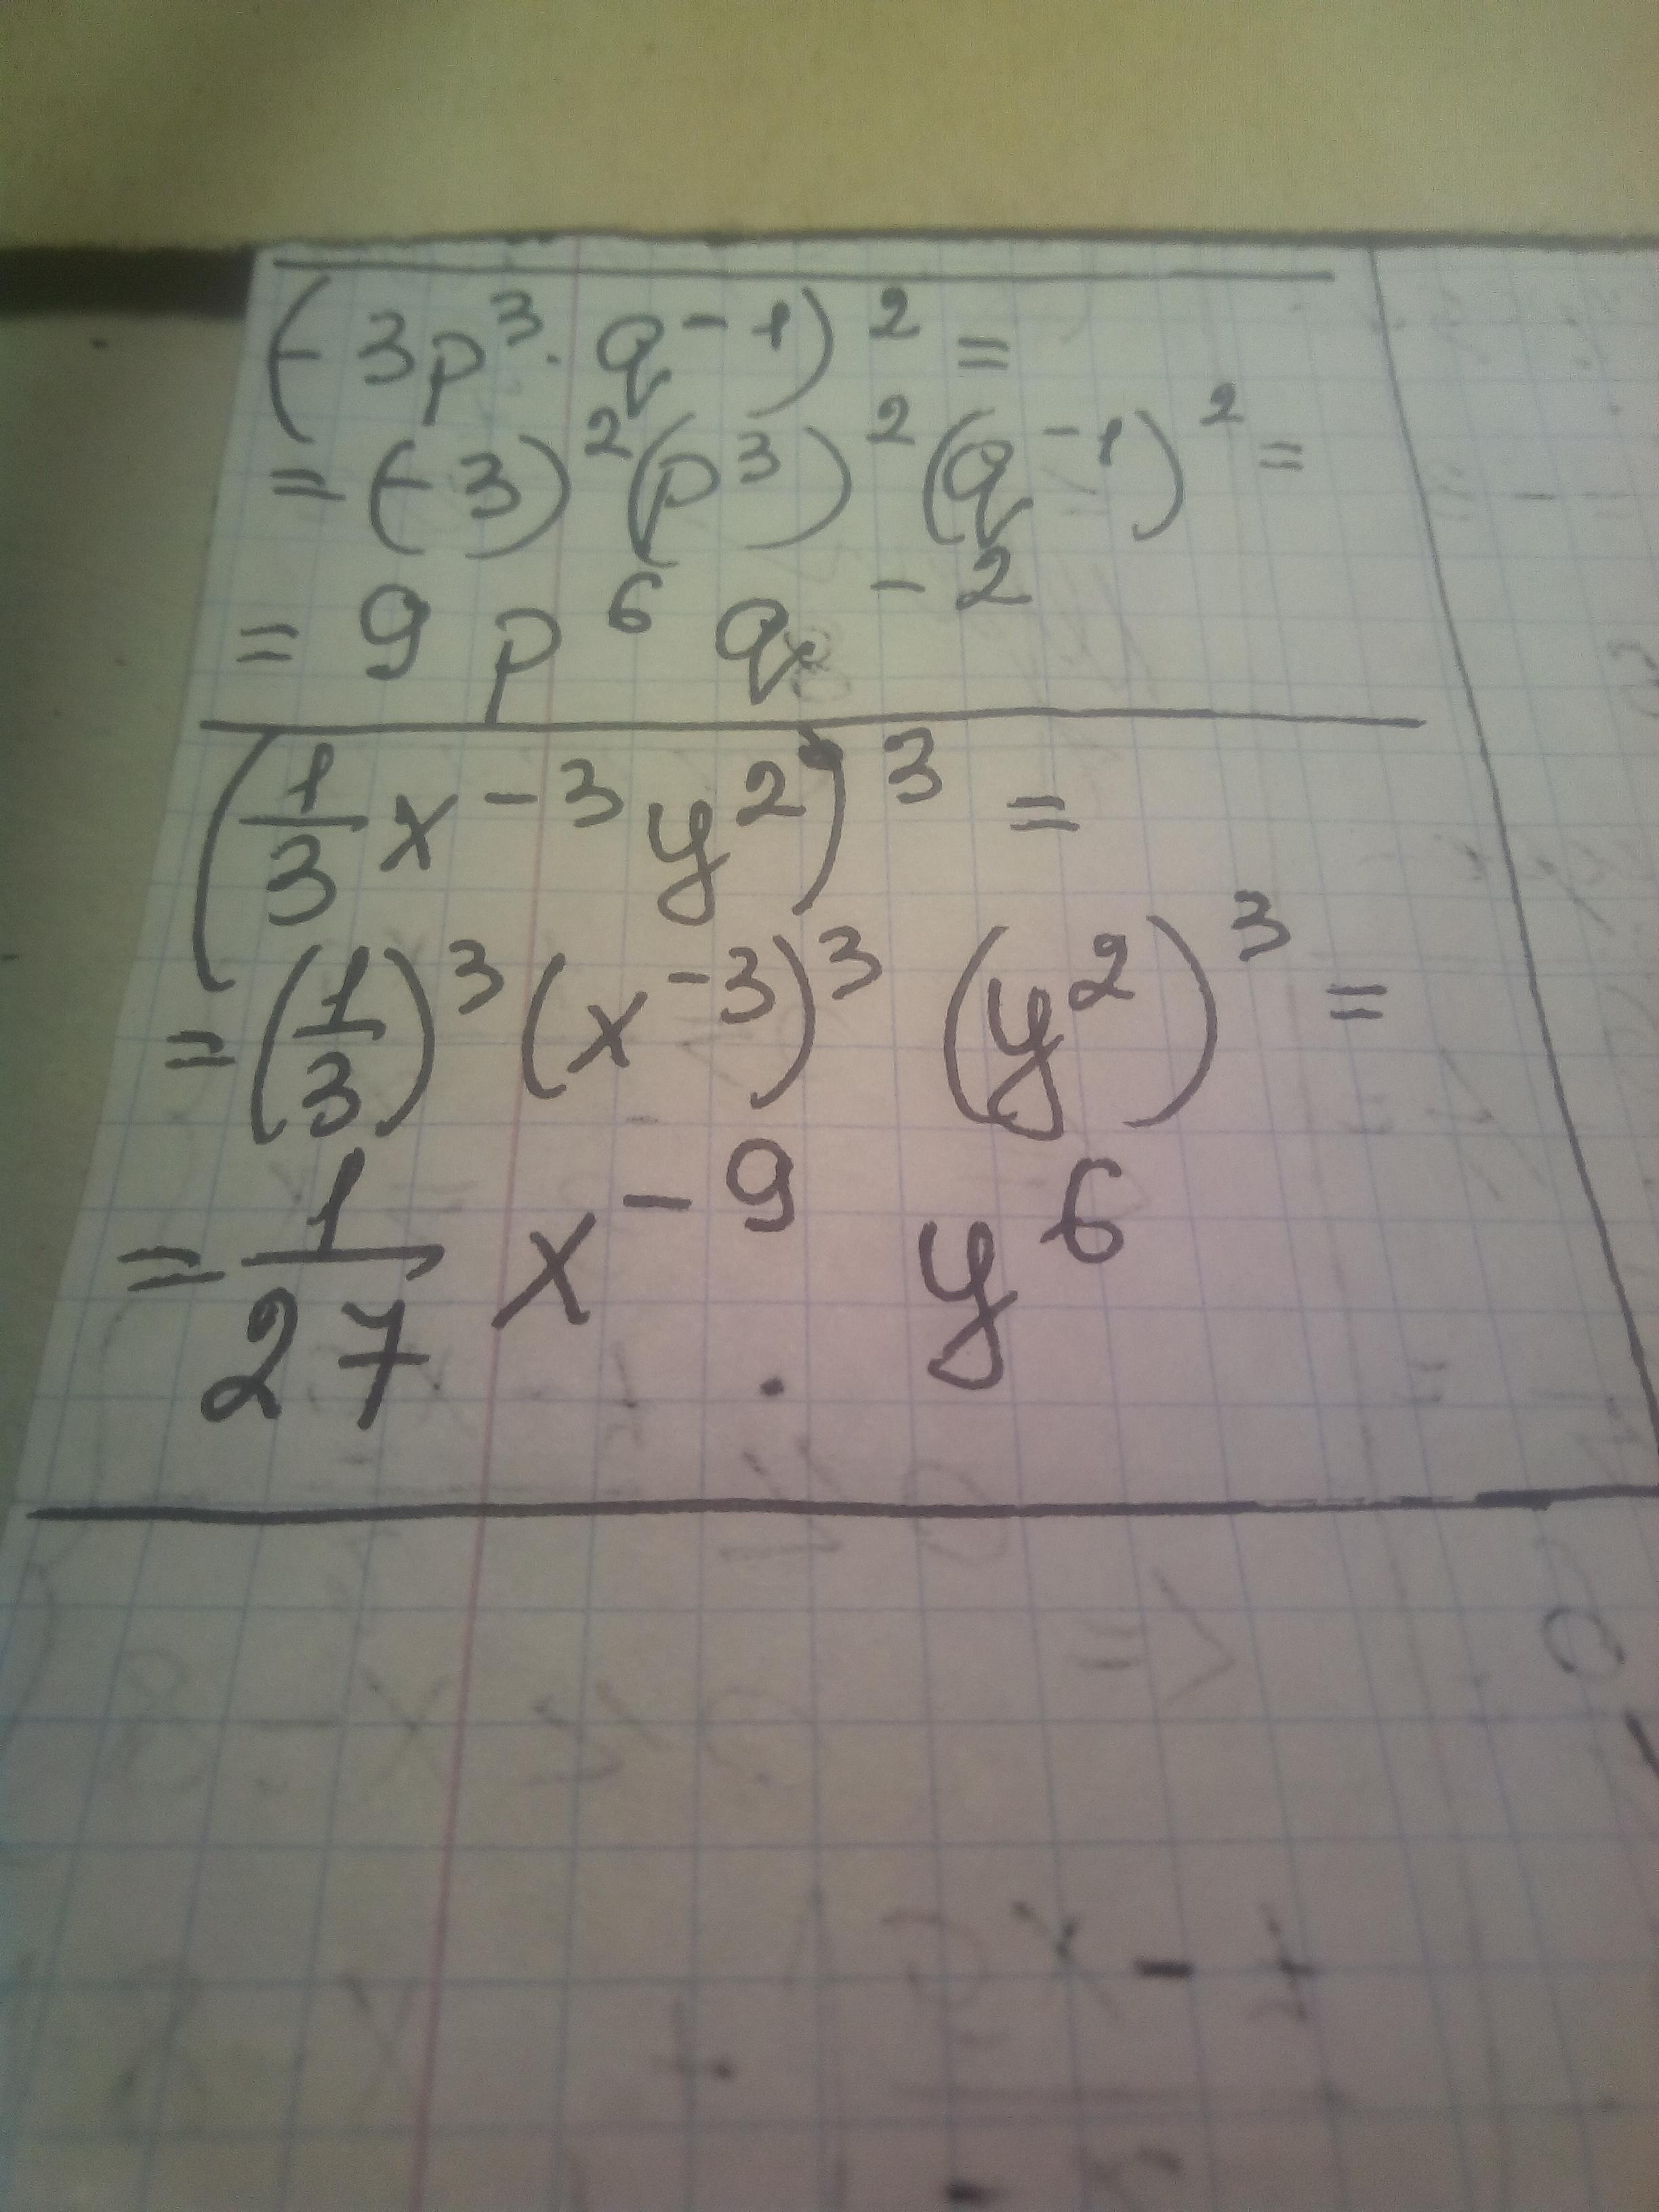 (-3p³·q⁻¹)² =
= (-3)²(p³)²(q⁻¹)² =
= 9 p⁶ q⁻²
(1/3 x⁻³y²)³ =
= (1/3)³(x⁻³)³ (y²)³ =
= 1/27 x⁻⁹ y⁶